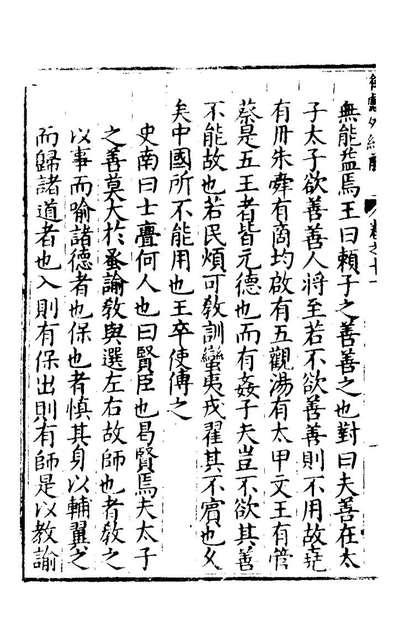 無能益焉王曰賴子之善善之也對曰夫善在太
子太子欲善善人將至若不欲善善則不用故堯
有丹朱舜有商均啟有五觀湯有太甲文王有管
蔡是五王者皆元德也而有姦子夫豈不欲其善
不能故也若民煩可敎訓蠻夷戎翟其不賓也久
矣中國所不能用也王卒使傅之
史南曰士亹何人也曰賢臣也曷賢焉夫太子
之善莫大於蚤諭敎與選左右故師也者敎之
以事而喻諸德者也保也者慎其身以輔翼之
而歸諸道者也入則有保出則有師是以教諭
卷之十一